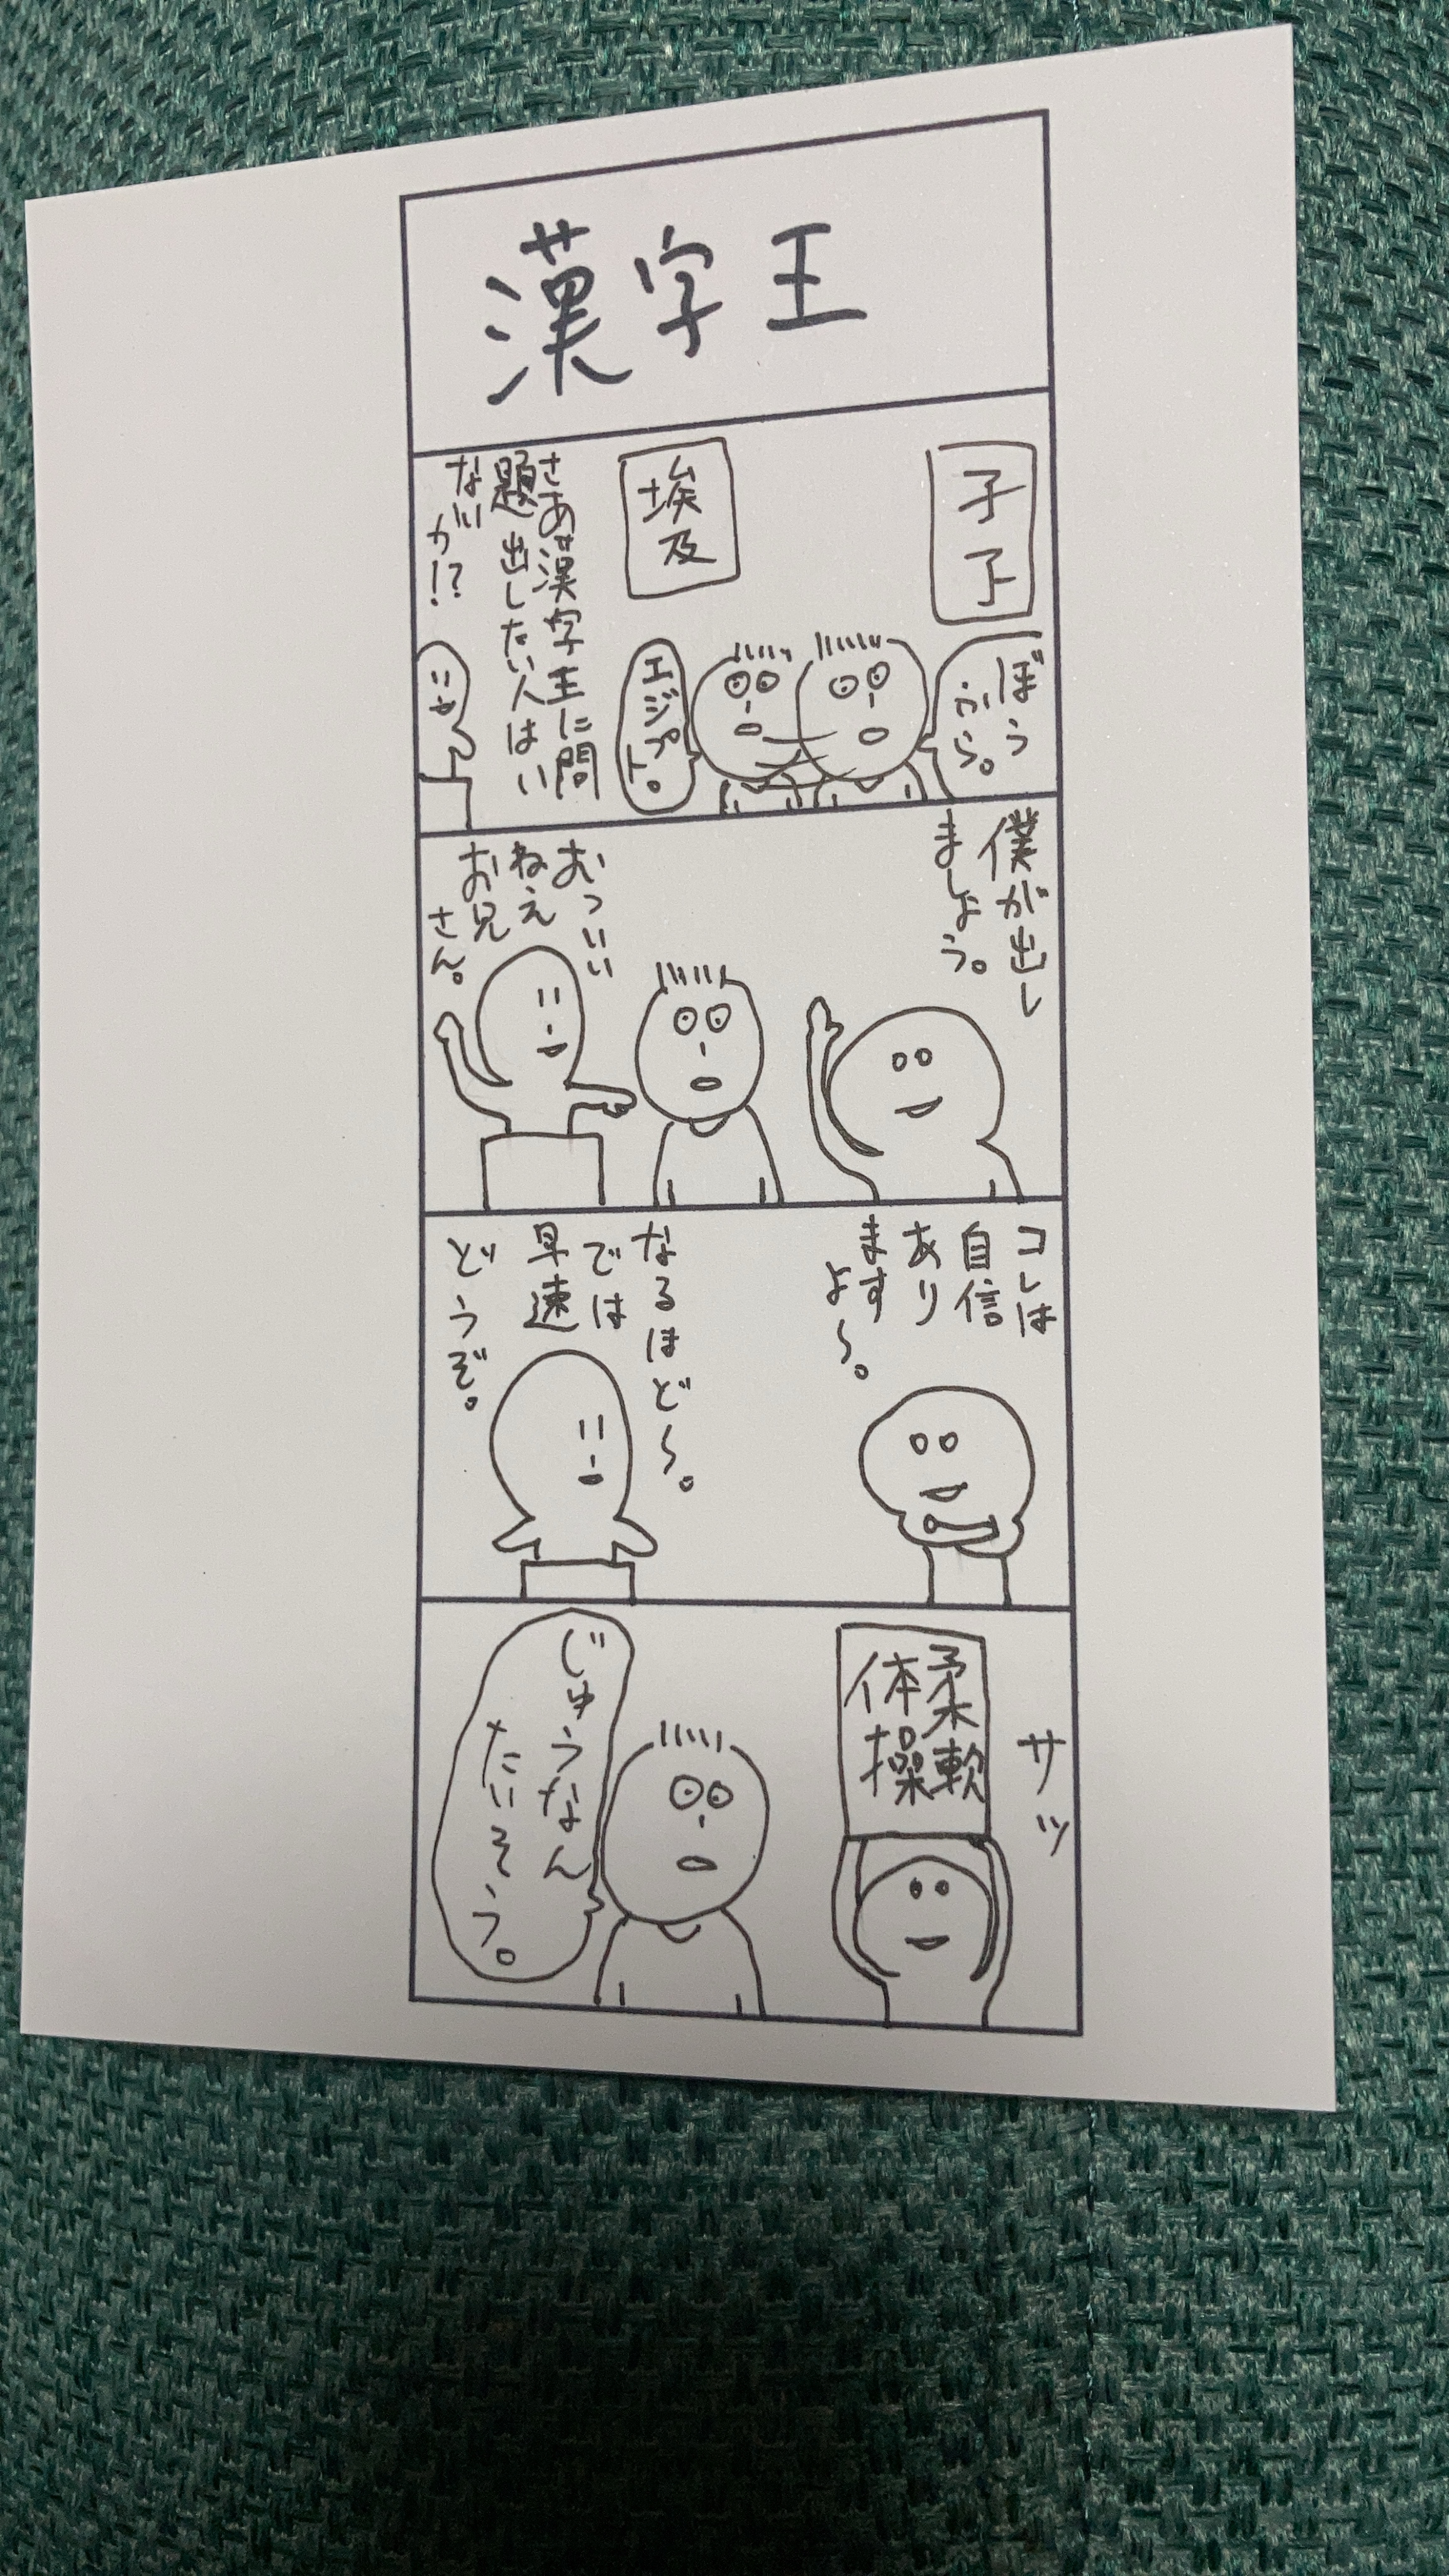 漢字王
孑孒
ぼう
ふら。
埃及
エジプト。
さあ漢字王に問
題出したい人はい
ない
か!?
僕が出し
ましょう。
おっいい
ねえ
お兄
さん。
コレは
自信
あり
ます
よ〜。
なるほど〜。
では
早速
どうぞ。
サッ
柔軟
体操
じゅうなん
たいそう。